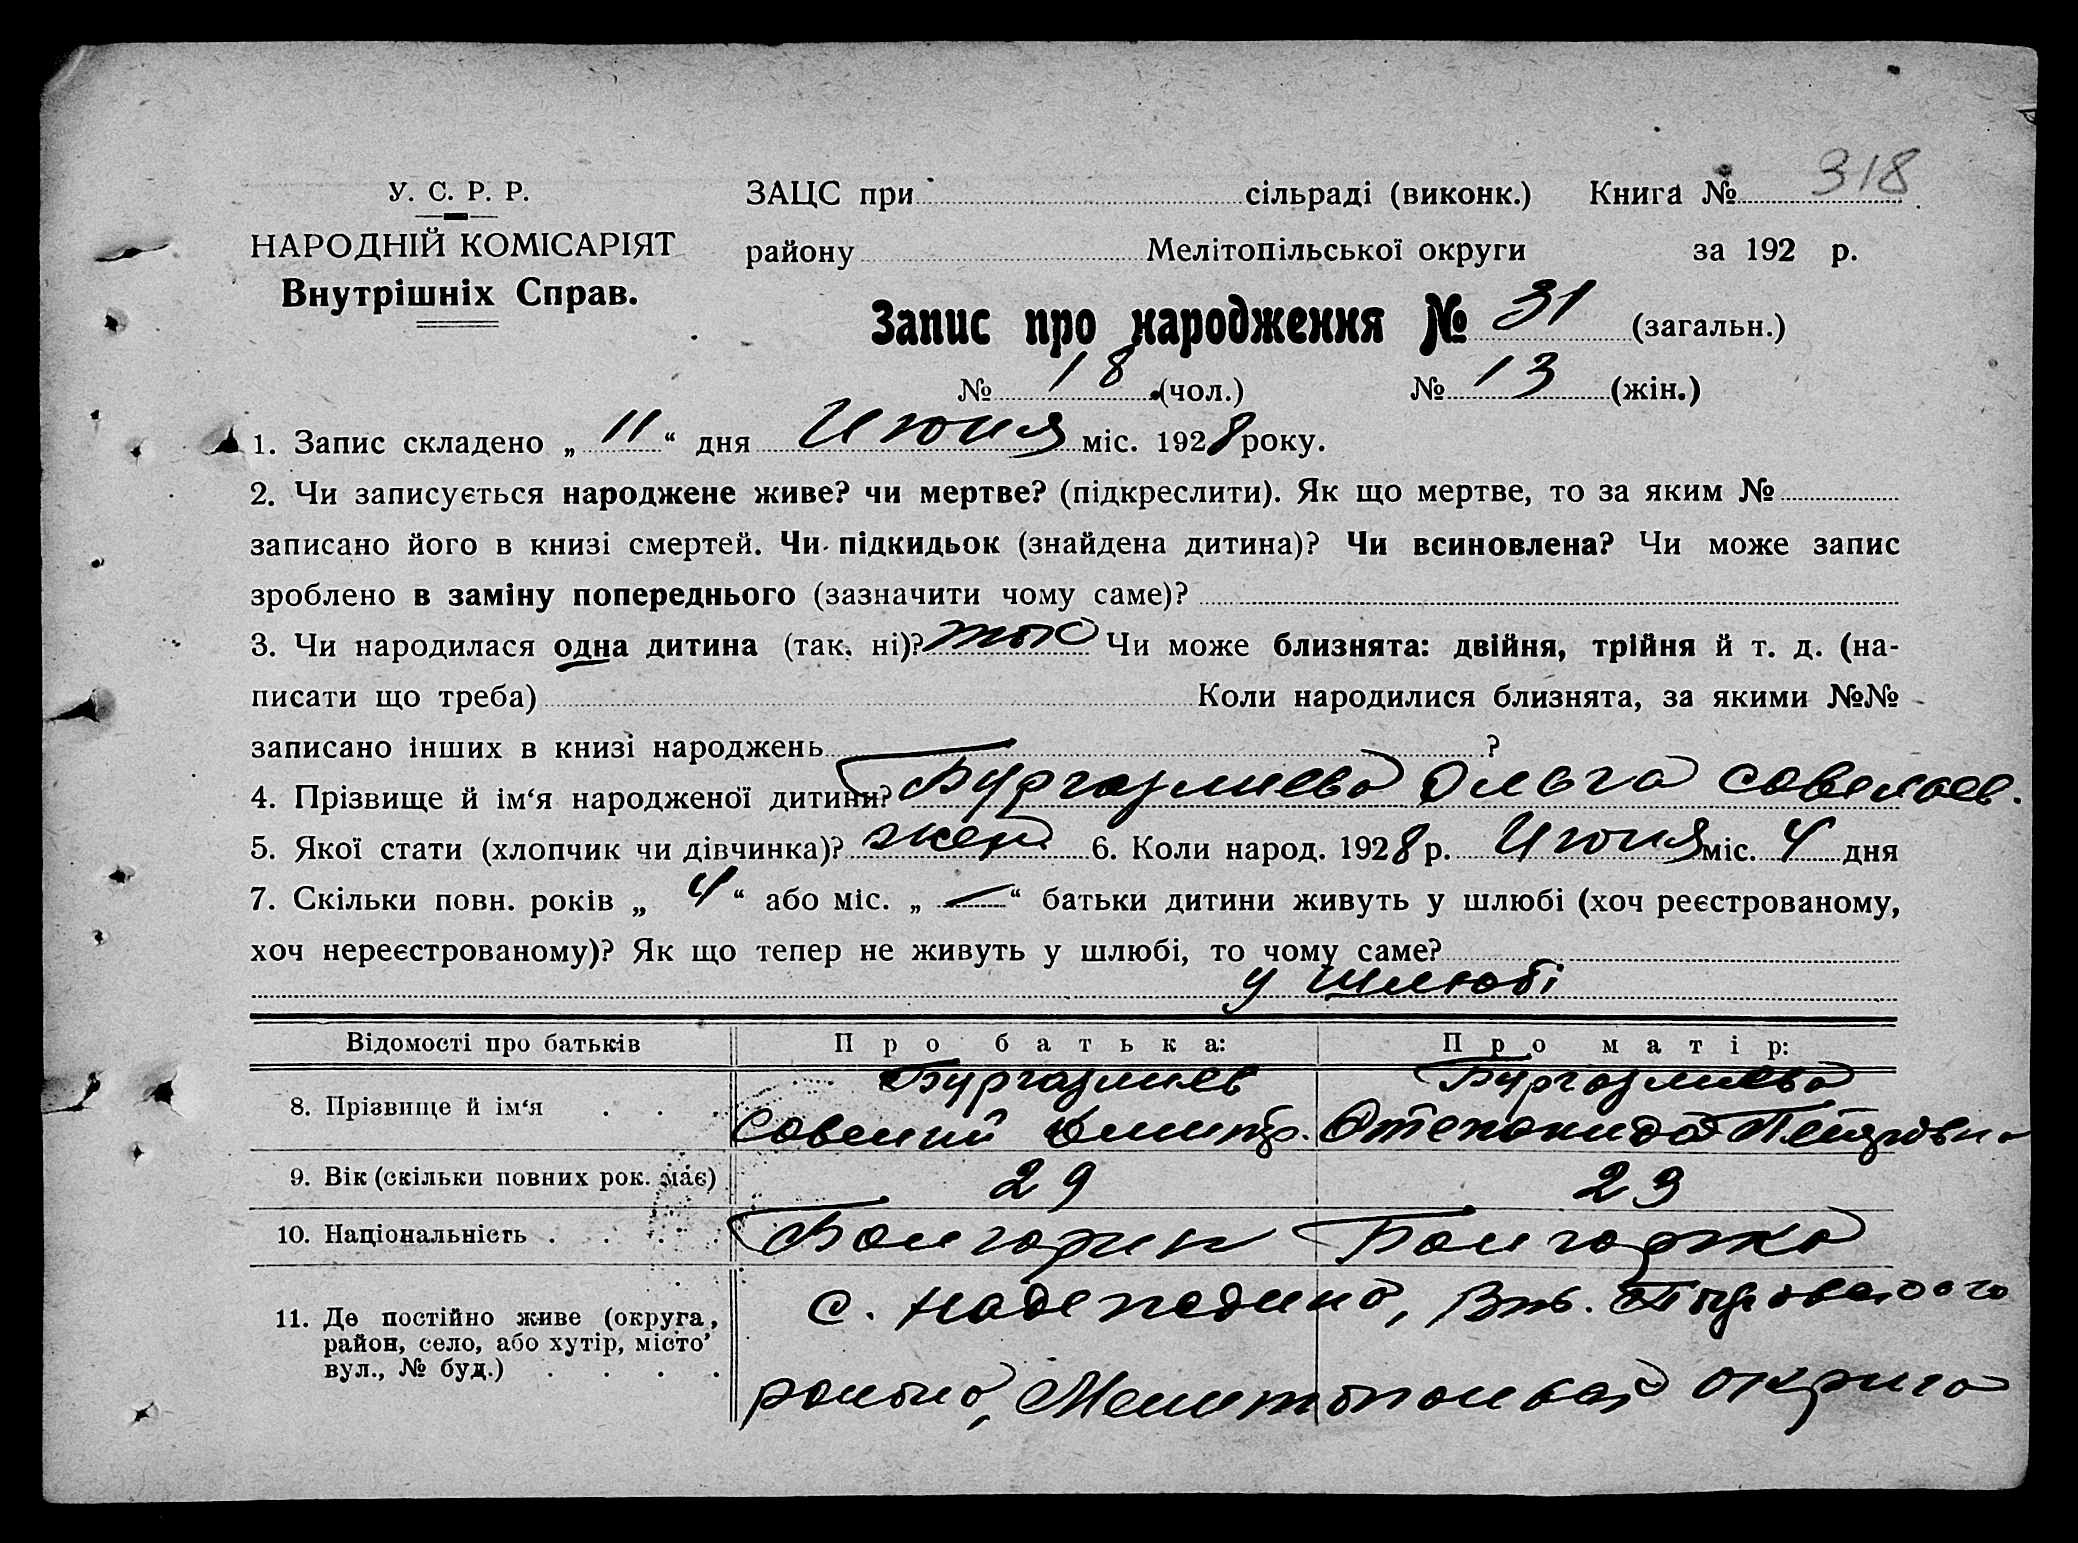 318
У. С. Р. Р.
НАРОДНІЙ КОМІСАРІЯТ
Внутрішніх Справ.
ЗАЦС при сільраді (виконк.) Книга №
району Мелітопільської округи за 192 р.
Запис про народження № 31 (загальн.)
№ 18 (чол.) № 13 (жін.)
1. Запис складено „ 11 “ дня Июня міс. 1928 року.
2. Чи записується народжене живе? чи мертве? (підкреслити). Як що мертве, то за яким №
записано його в книзі смертей. Чи підкидьок (знайдена дитина)? Чи всиновлена? Чи може запис
зроблено в заміну попереднього (зазначити чому саме)?
3. Чи народилася одна дитина (так, ні)? Чи може близнята: двійня, трійня й т. д. (на-
писати що треба) Коли народилися близнята, за якими №№
записано інших в книзі народжень ?
4. Прізвище й ім‘я народженої дитини? Бургазлиева Ольга Савельев.
5. Якої стати (хлопчик чи дівчинка)? жен. 6. Коли народ. 1928 р. Июня міс. 4 дня
7. Скільки повн. років „ 4 “ або міс. „ — “ батьки дитини живуть у шлюбі (хоч реєстрованому,
хоч нереєстрованому)? Як що тепер не живуть у шлюбі, то чому саме?
у шлюбі
Відомості про батьків Про батька: Про матір:
Бургазлиев Бургазлиева
8. Прізвище й ім‘я . . . Савелий Дмитр. Степанида Петровна
9. Вік (скільки повних рок. має) 29 23
10. Національність . . . . Болгарин Болгарка
11. Де постійно живе (округа, с. Надеждино,
район, село, або хутір, місто’
вул., № буд.) . . . . района, Мелитопольской округа